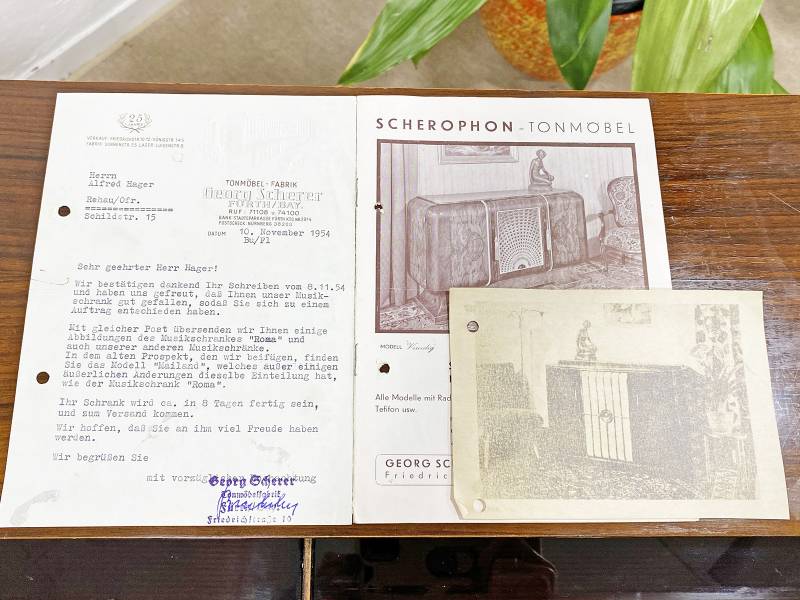 25
JAHRE
VERKAUF: FRIEDRICHSTR. 10
FABRIK: LAGER:
Herrn
Alfred Hager
Rehau/Ofr.
Schildstr. 15
TONMÖBEL-FABRIK
Georg Scherer
FÜRTH/BAY.
RUF: 71108 u. 74100
BANK: STADTSPARKASSE FÜRTH
POSTSCHECK: NÜRNBERG
DATUM 10. November 1954
Bu/Fl
Sehr geehrter Herr Hager!
Wir bestätigen dankend Ihr Schreiben vom 8.11.54
und haben uns gefreut, daß Ihnen unser Musik-
schrank gut gefallen, sodaß Sie sich zu einem
Auftrag entschieden haben.
Mit gleicher Post übersenden wir Ihnen einige
Abbildungen des Musikschrankes "Roma" und
auch unserer anderen Musikschränke.
In dem alten Prospekt, den wir beifügen, finden
Sie das Modell "Mailand", welches außer einigen
äußerlichen Änderungen dieselbe Einteilung hat,
wie der Musikschrank "Roma".
Ihr Schrank wird ca. in 8 Tagen fertig sein,
und zum Versand kommen.
Wir hoffen, daß Sie an ihm viel Freude haben
werden.
Wir begrüßen Sie
mit vorzüglicher Hochachtung
Georg Scherer
Tonmöbelfabrik
Friedrichstraße 10
SCHEROPHON-TONMÖBEL
MODELL Venedig
Alle Modelle mit Rad
Tefifon usw.
GEORG SC
Friedric